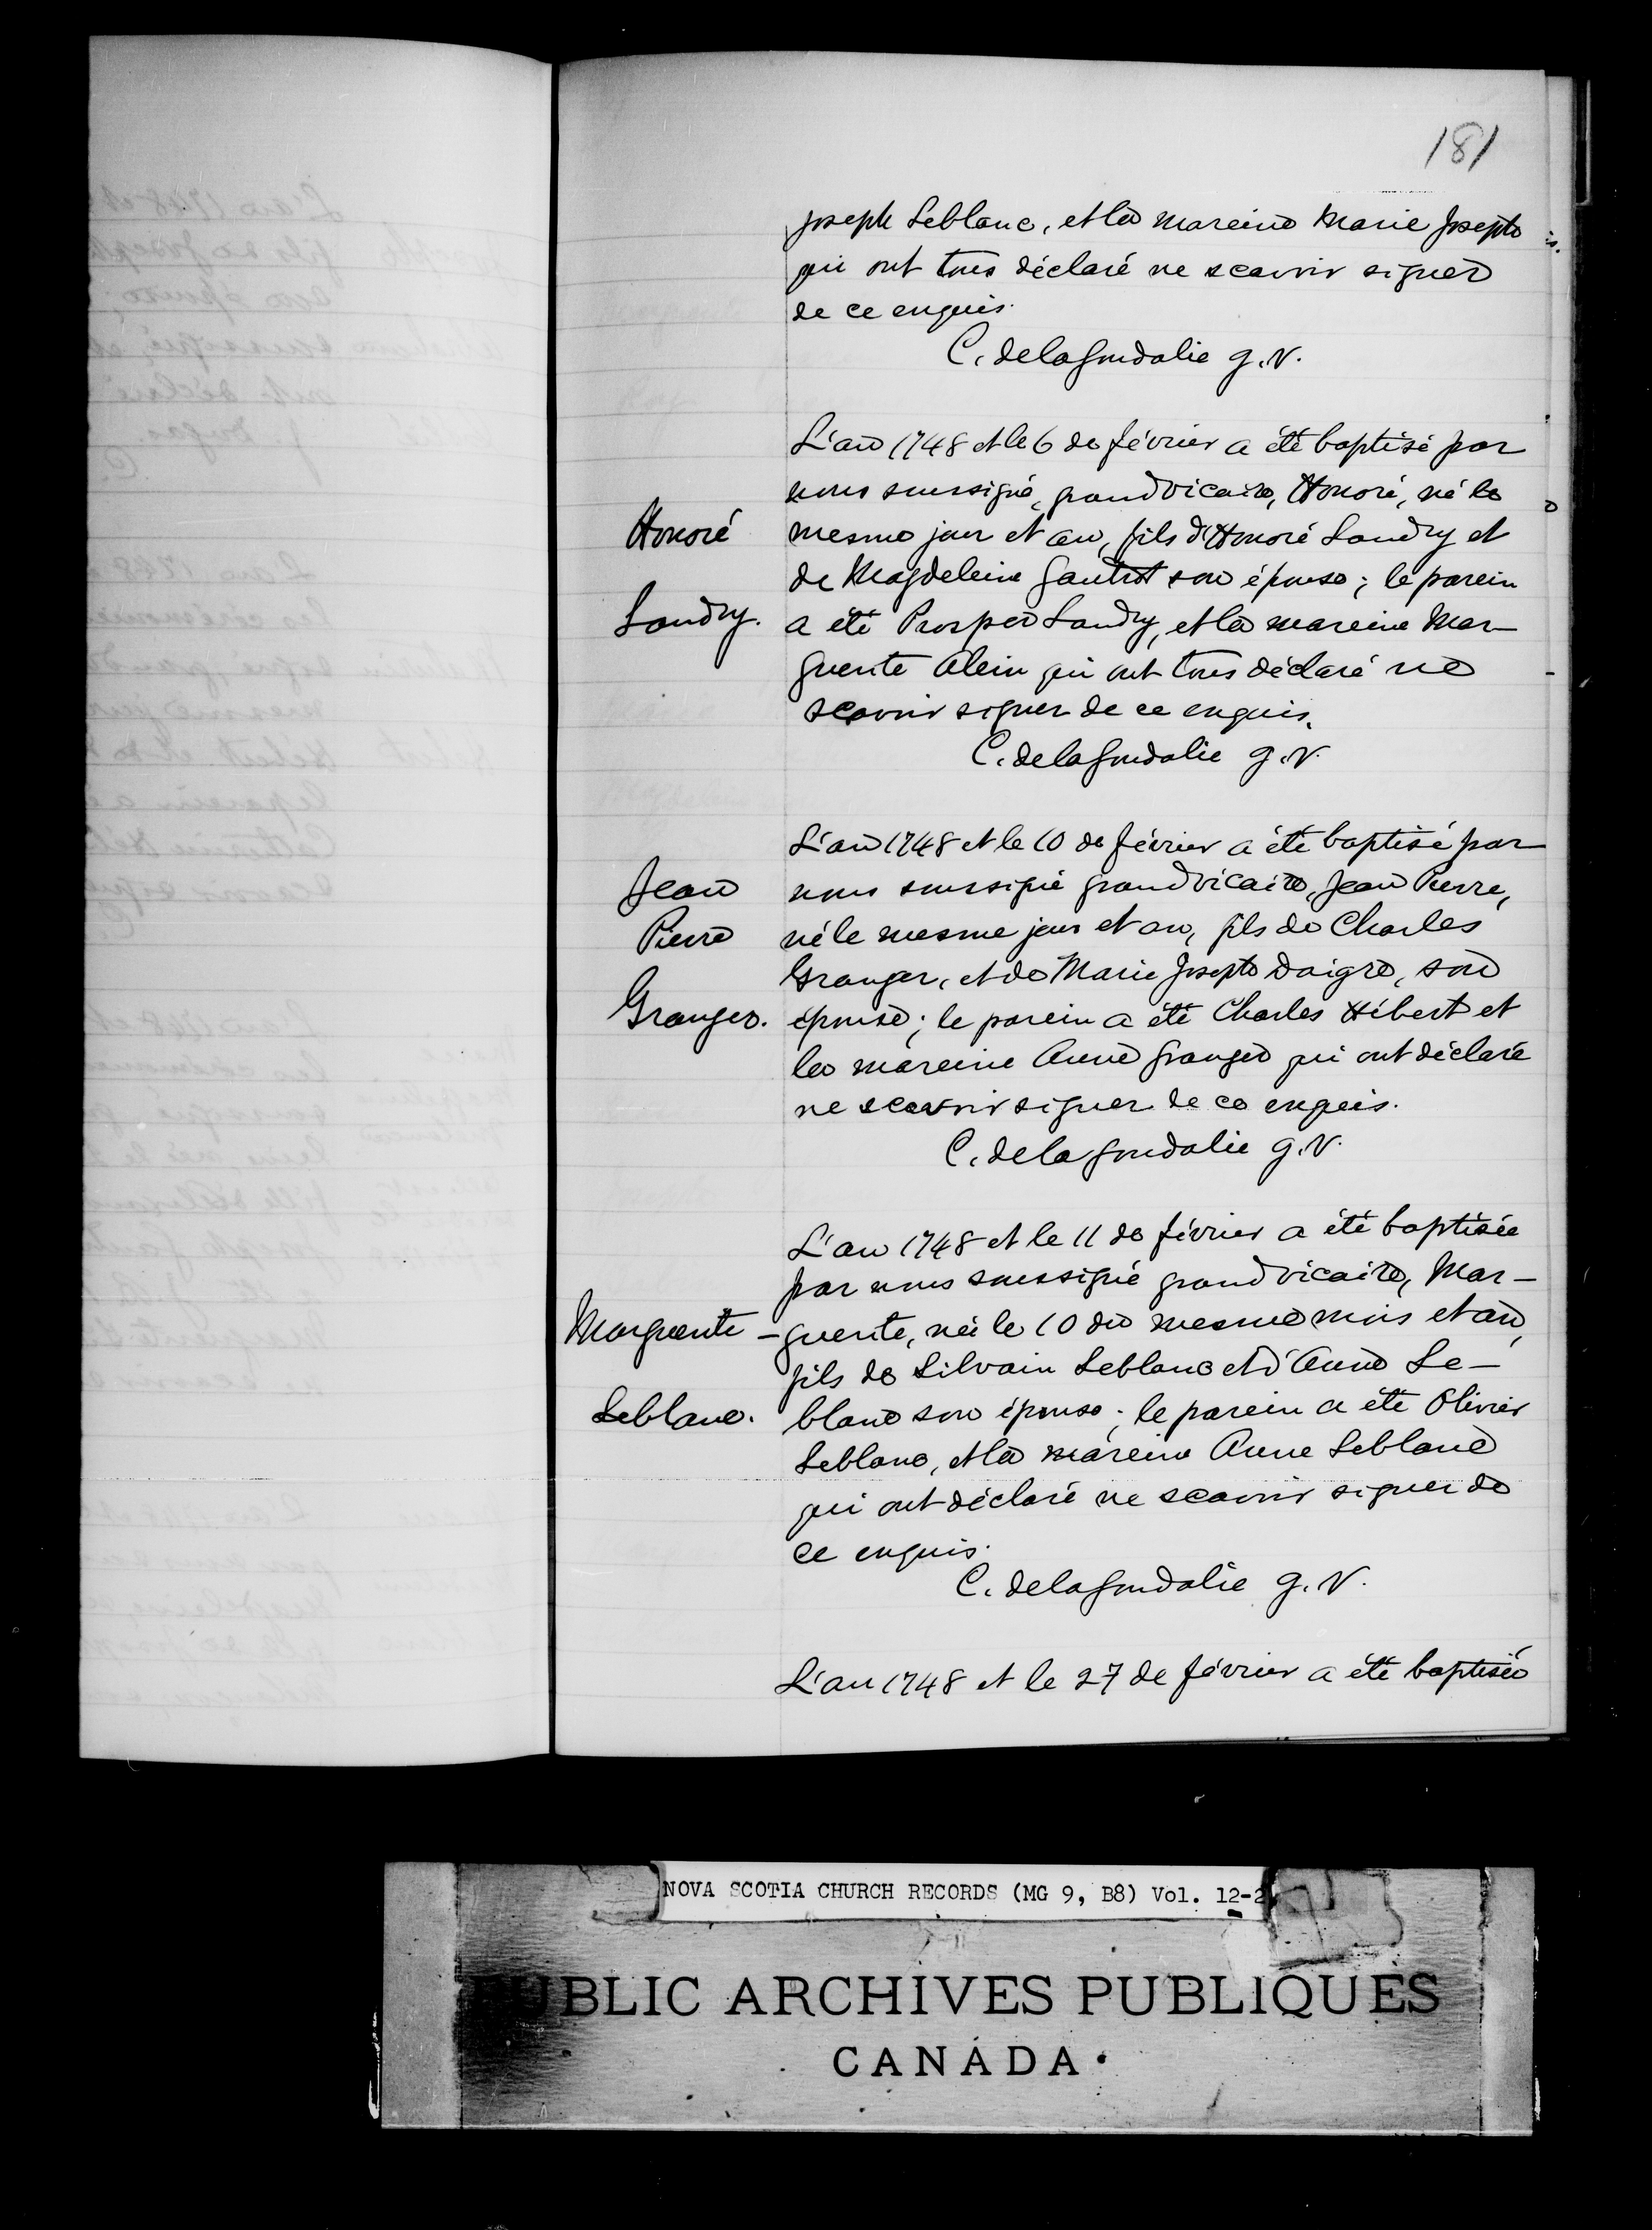 181
joseph Leblanc, et la mareine Marie Josepte
qui ont tous déclaré ne scavoir signer
de ce enquis.
C. delagoudalie g.v.
L'an 1748 et le 6 de février a été baptisé par
nous soussigné, grand vicaire, Honoré, né le
Honoré
mesme jour et an, fils d'Honoré Landry et
de Magdeleine gautrot son épouse; le parein
Landry.
a été Prosper Landry, et la mareine Mar-
guerite alein qui ont tous déclaré ne
scavoir signer de ce enquis.
C. delagoudalie g.v.
L'an 1748 et le 10 de février a été baptisé par
Jean
nous soussigné grand vicaire, Jean Pierre,
Pierre
né le mesme jour et an, fils de Charles
Granger, et de Marie Josepte Daigre, son
Granger.
épouse; le parein a été Charles Hébert et
la mareine Anne granger qui ont déclaré
ne scavoir signer de ce enquis.
C. delagoudalie g.v.
L'an 1748 et le 11 de février a été baptisée
par nous soussigné grand vicaire, Mar-
Marguerite
-guerite, née le 10 du mesme mois et an,
fils de Silvain Leblanc et d'Anne Le-
Leblanc.
blanc son épouse; le parein a été Olivier
Leblanc, et la mareine Anne Leblanc
qui ont déclaré ne scavoir signer de
ce enquis.
C. delagoudalie g.v.
L'an 1748 et le 27 de février a été baptisée
NOVA SCOTIA CHURCH RECORDS (MG 9, B8) Vol. 12-2
PUBLIC ARCHIVES PUBLIQUES
CANADA